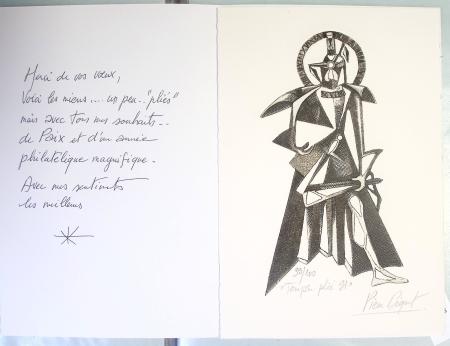 Merci de vos vœux,
Voici les miens.... un peu.. "pliés"
mais avec tous mes souhaits..
de Paix et d'une année
philatélique magnifique.
Avec mes sentiments
les meilleurs
"Temps plié 91"